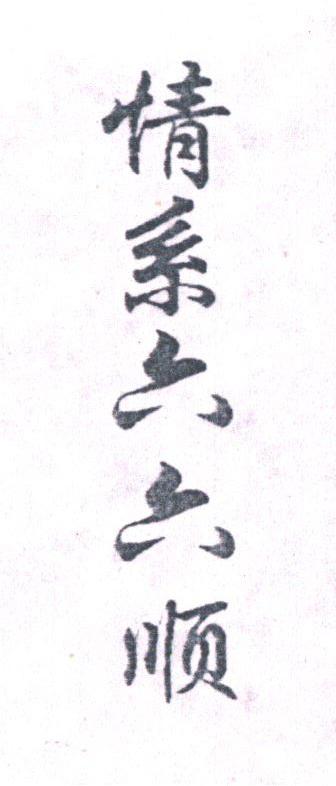 情系六六顺